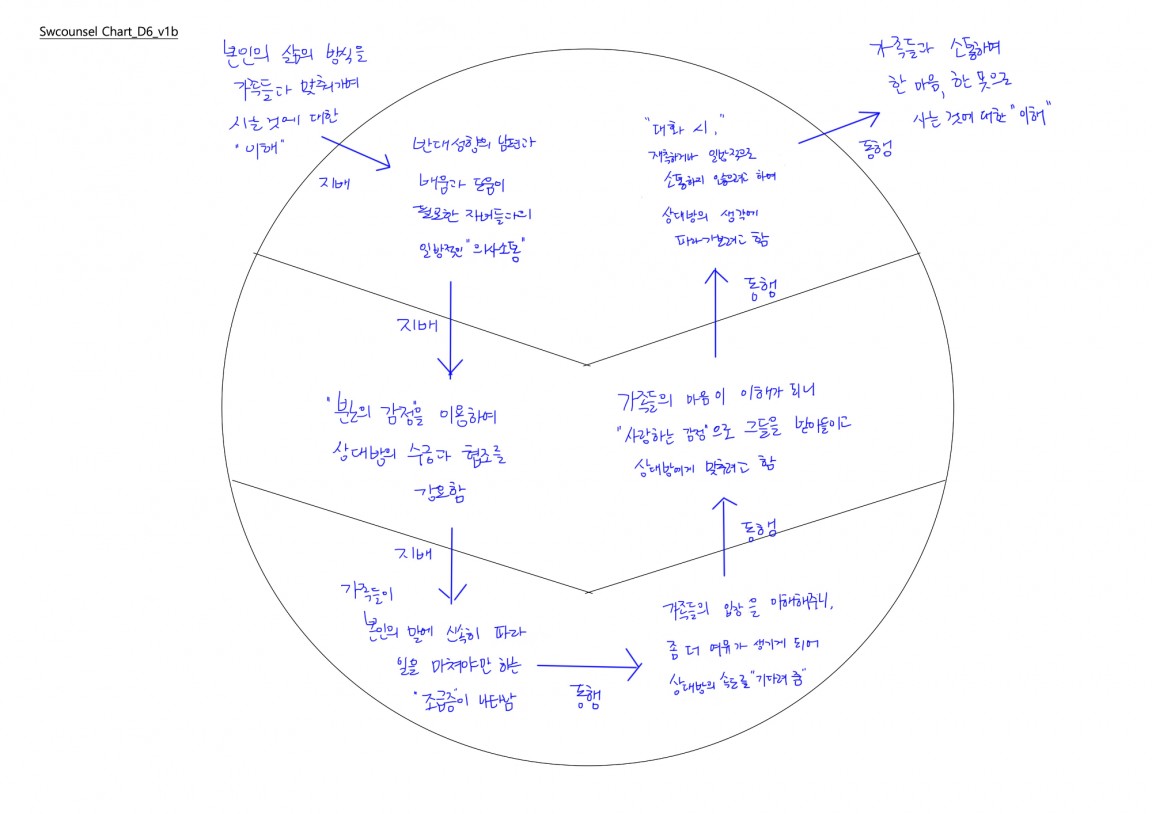 Swcounsel Chart_D6_v1b
본인의 삶의 방식을
가족들과 맞춰가며
사는 것에 대한
"이해"
지배
반대성향의 남편과
배움과 닮음이
필요한 자녀들과의
일방적인 "의사소통"
지배
"분노의 감정"을 이용하여
상대방의 수긍과 협조를
강요함
지배
가족들이
본인의 말에 신속히 따라
일을 마쳐야만 하는
"조급증"이 나타남
동행
가족들의 입장을 이해해주니,
좀 더 여유가 생기게 되어
상대방의 속도를 "기다려 줌"
동행
가족들의 마음이 이해가 되니
"사랑하는 감정"으로 그들을 받아들이고
상대방에게 맞추려고 함
동행
"대화 시,"
재촉하거나 일방적으로
소통하지 않으려고 하며
상대방의 생각에
따라가보려고 함
동행
가족들과 소통하며
한 마음, 한 뜻으로
사는 것에 대한 "이해"